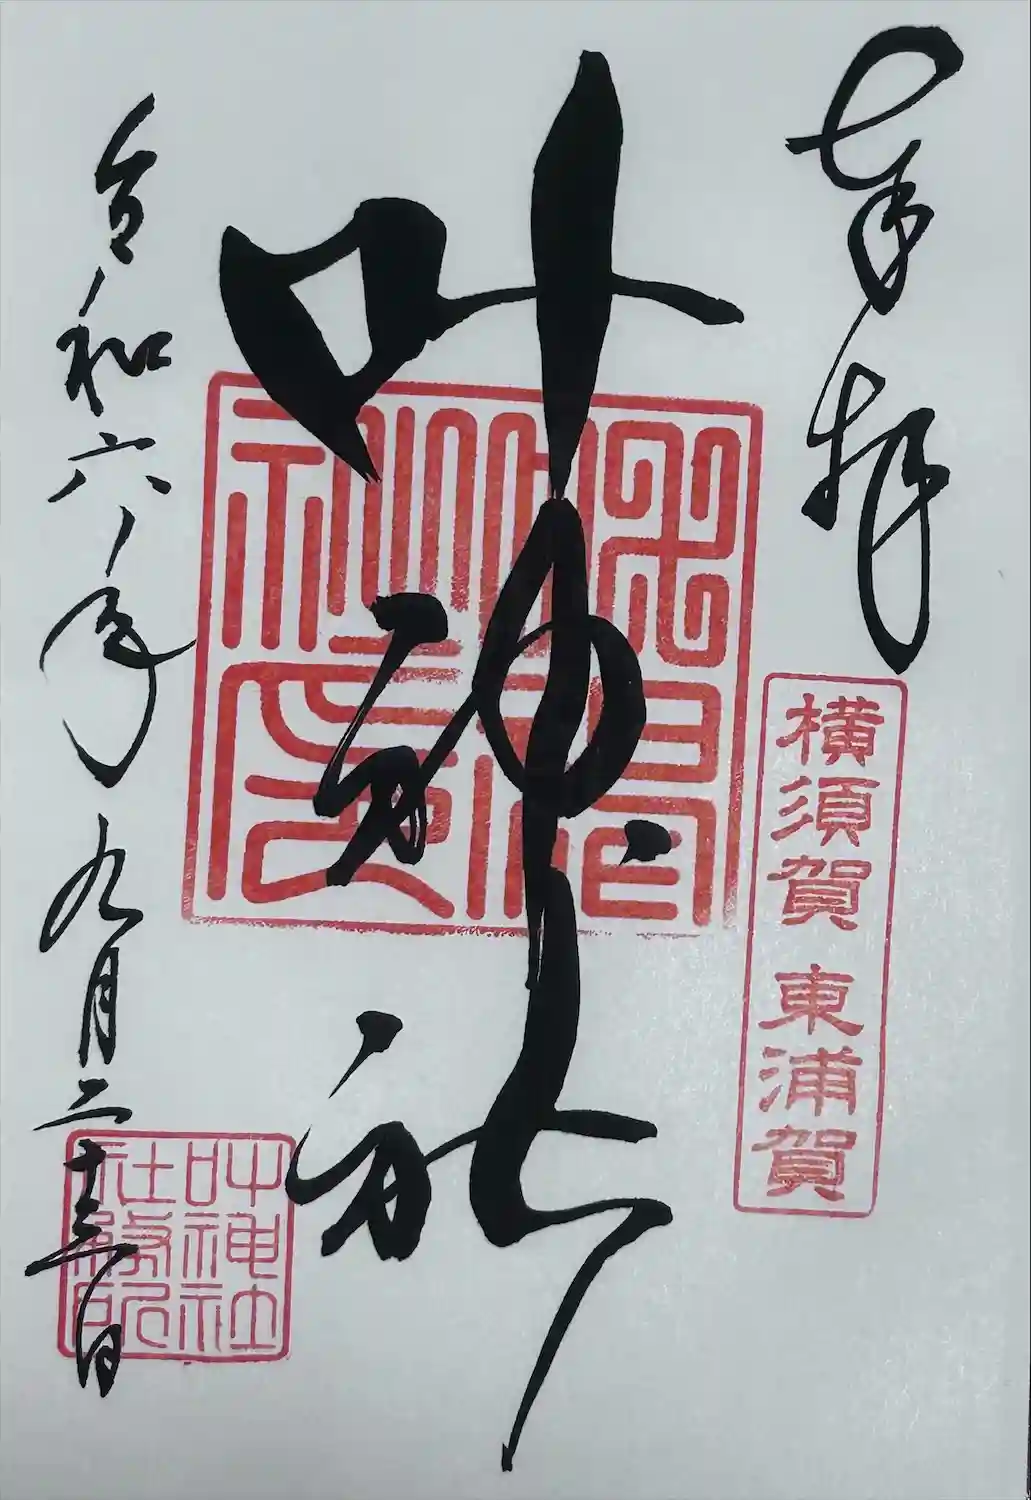 奉拝
横須賀 東浦賀
叶神社
令和六年九月二十三日
叶神社
社務所